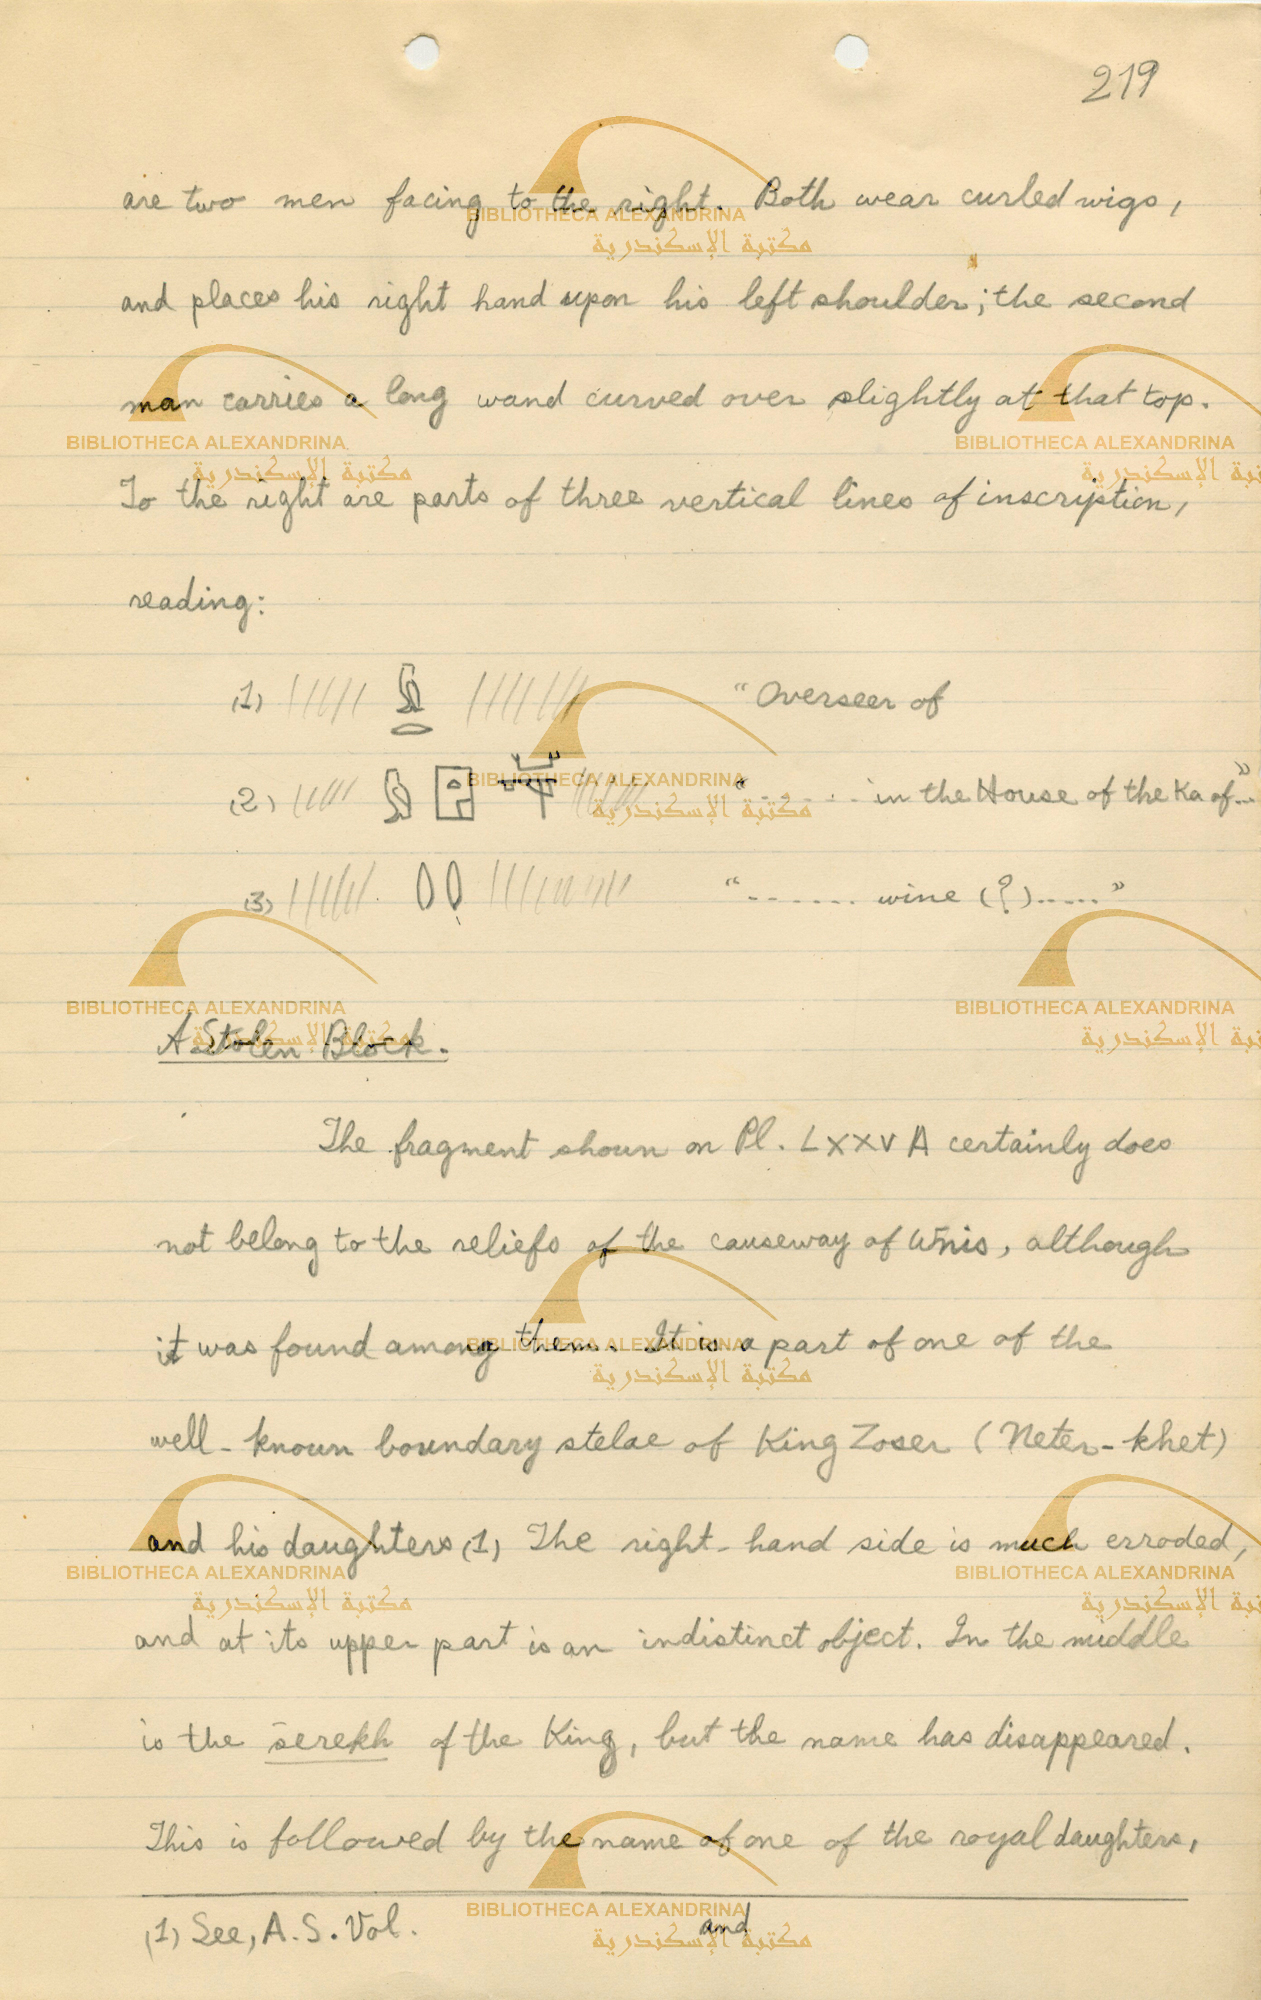 219
are two men facing to the right. Both wear curled wigs,
and places his right hand upon his left shoulder; the second
man carries a long wand curved over slightly at that top.
To the right are parts of three vertical lines of inscription,
reading:
(1) "Overseer of
(2) " . . . . . in the House of the Ka of..."
(3) "....... wine (?)....."
A Stolen Block.
The fragment shown on Pl. LXXV A certainly does
not belong to the reliefs of the causeway of Wnis, although
it was found among them. It is a part of one of the
well-known boundary stelae of King Zoser (Neter-khet)
and his daughters (1) The right-hand side is much erroded,
and at its upper part is an indistinct object. In the middle
is the serekh of the King, but the name has disappeared.
This is followed by the name of one of the royal daughters,
(1) See, A.S. Vol. and
BIBLIOTHECA ALEXANDRINA
مكتبة الإسكندرية